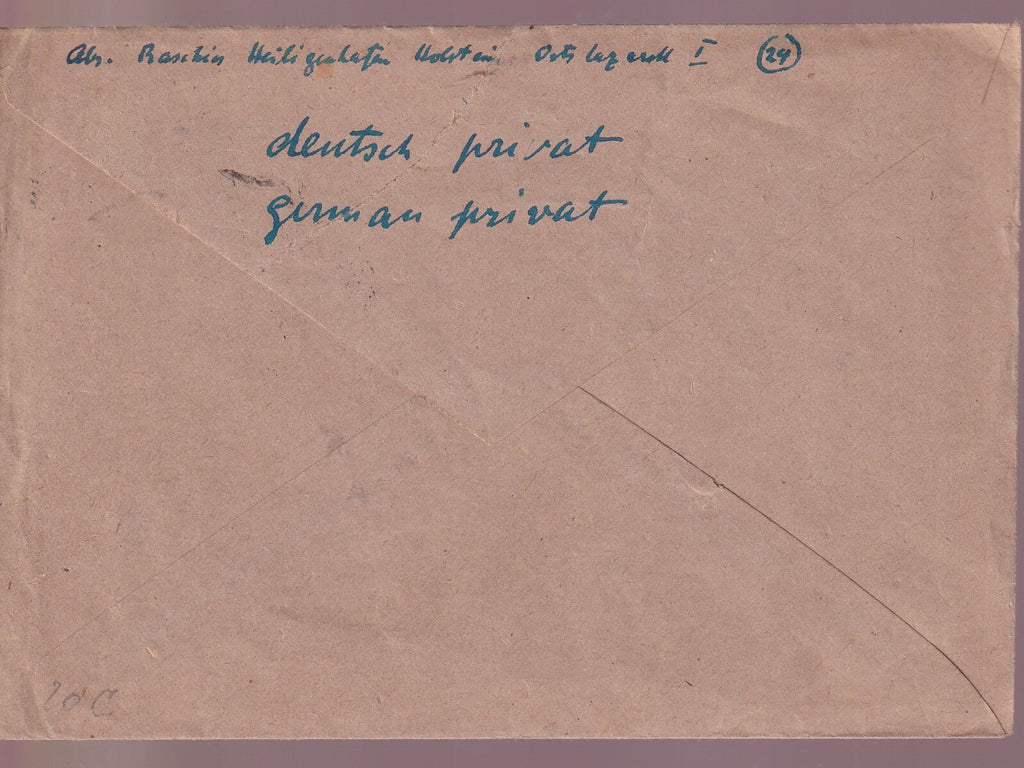 Abs. Raschins Heiligenhafen Holstein. Ortslazarett I (24)
deutsch privat
german privat